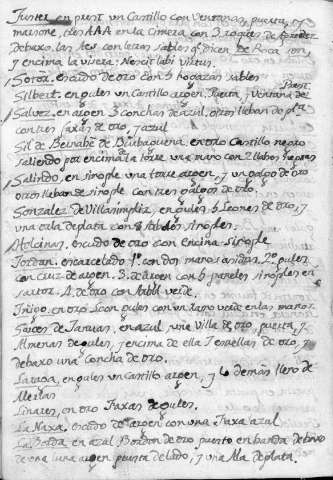 en un Castillo con Ventanas, puerta, y
AAA en la Cimera con 3
debaxo, las con letras sables q. dicen de Roca son,
y encima la visera: Nescit labi virtus.
escudo de oro con 5 sables
Gilbert. en gules un Castillo argen. Puerta, y Ventana de
Galvez. en argen 3 conchas de azul. otros llevan de plata
con tres faxas de oro, y azul
Gil de Bernabe de Burbaguena, en oro Castillo negro
saliendo por encima la torre una mano con 2 llabes negras
Galindo. en sinople una torre argen, y un galgo de oro
otros llevan de sinople con tres galgos de oro.
Gonzalez de Villasimpliz, en gules 5 Leones de oro, y
una orla de plata con 8 sinople.
Molcinas. escudo de oro con encina sinople
Jordan. encarcelado 1º con dos manos asidas, 2º gules
con cruz de argen. 3. de argen con 5 paneles sinoples en
sautor. 4. de oro con Arbol verde.
Iñigo. en oro Leon gules con un ramo verde en las manos.
Garces de Januas, en azul una Villa de oro, puerta, y
Almenas de gules, y encima de ella 3 estrellas de oro, y
debaxo una Concha de oro.
en gules un Castillo argen, y lo demas lleno de
Linares, en oro Faxas de gules.
La Naxa. escudo de argen con una Faxa azul
en azul Bordon de oro puesto en banda debaxo
de una luna argen puesta de lado, y una Alla de plata.